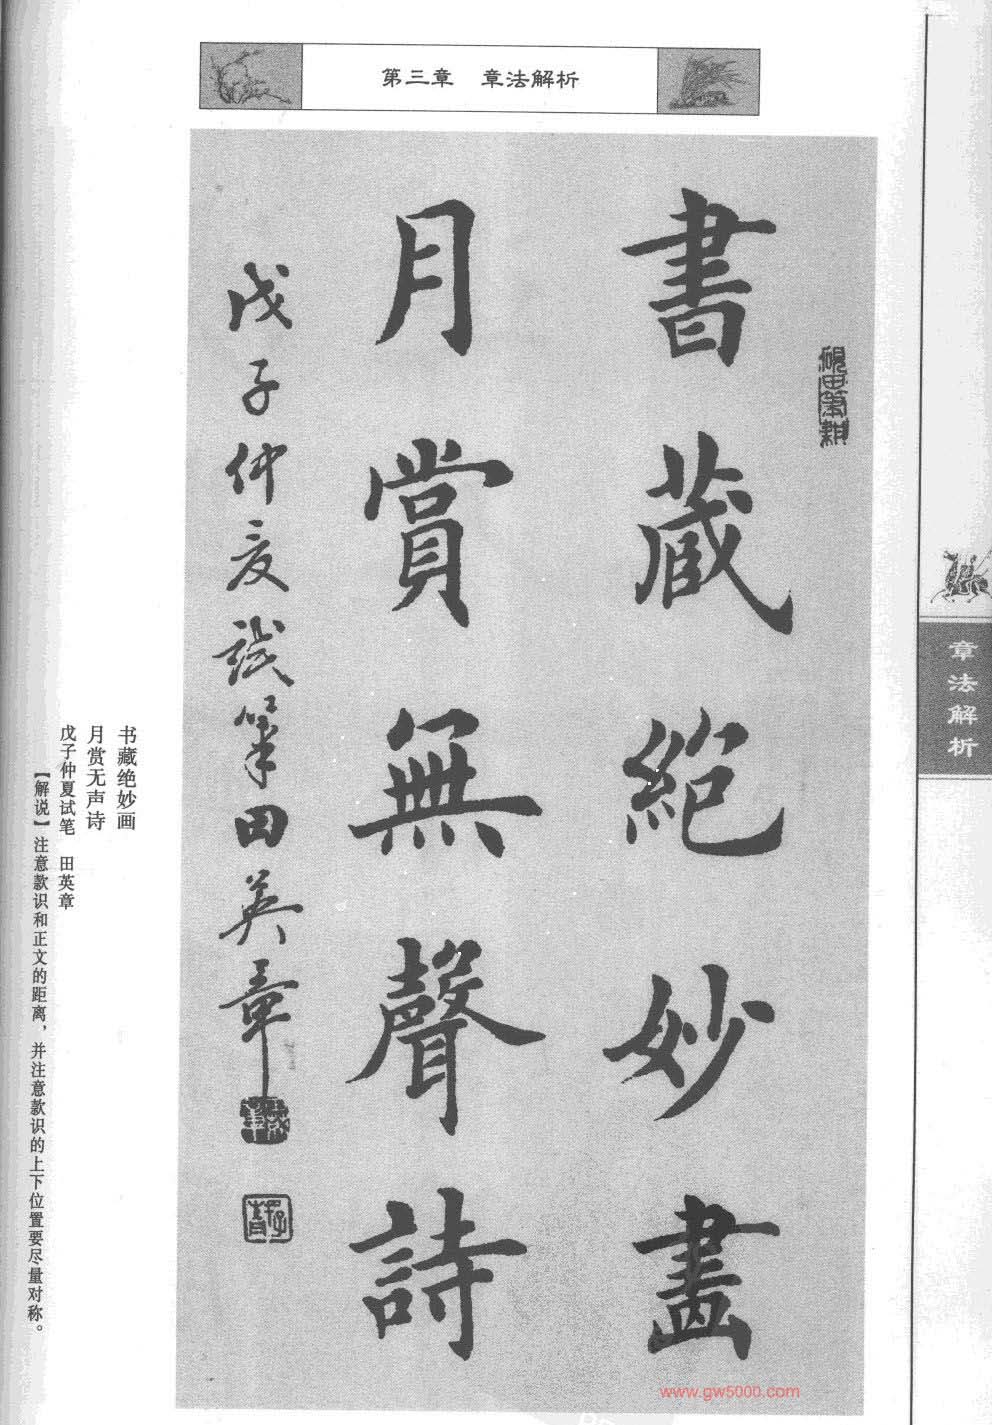 第三章 章法解析
書藏絕妙畫
月賞無聲詩
戊子仲夏試筆田英章
砚田笔耕
章法解析
书藏绝妙画
月赏无声诗
戊子仲夏试笔 田英章
【解说】注意款识和正文的距离，并注意款识的上下位置要尽量对称。
www.gw5000.com